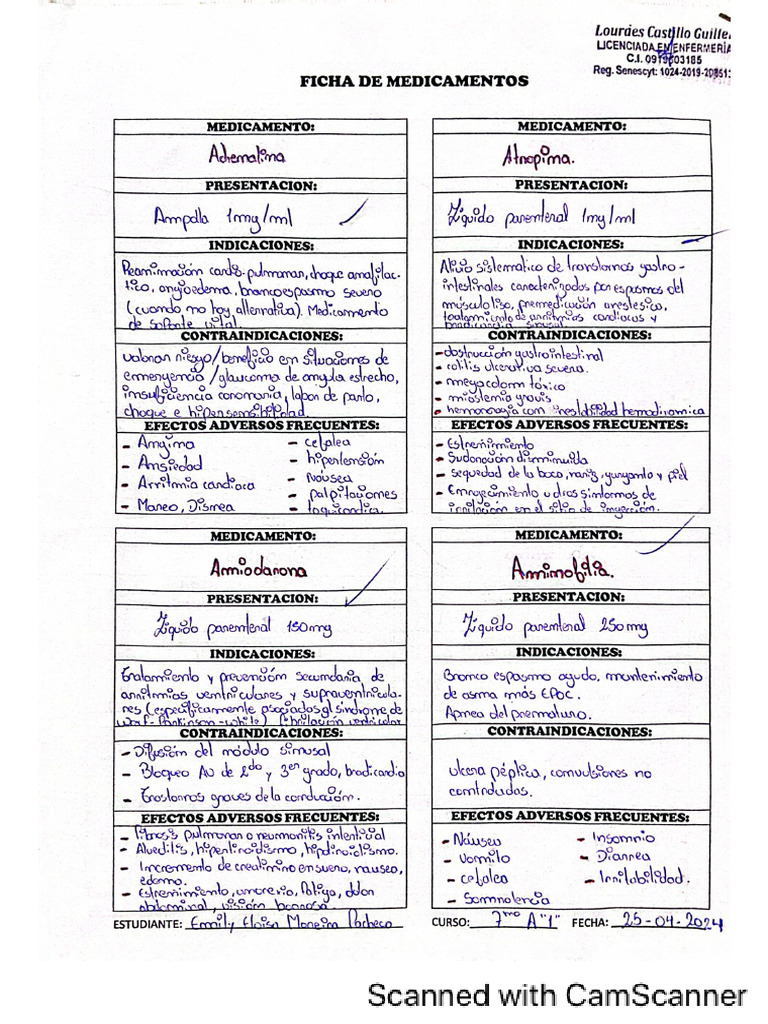 Lourdes Castillo Guille
LICENCIADA EN ENFERMERÍA
C.I. 0919603185
Reg. Senescyt: 1024-2019-20851
FICHA DE MEDICAMENTOS
MEDICAMENTO:
Adrenalina
PRESENTACION:
Ampolla 1mg/ml
INDICACIONES:
Reanimación cardio-pulmonar, choque anafilac-
tico, angioedema, broncoespasmo severo
(cuando no hay alternativa). Medicamento
de soporte vital.
CONTRAINDICACIONES:
valorar riesgo/beneficio en situaciones de
emergencia/glaucoma de angulo estrecho,
insuficiencia coronaria, labor de parto,
choque e hipersensibilidad.
EFECTOS ADVERSOS FRECUENTES:
- Angina
- Ansiedad
- Arritmia cardiaca
- Mareo, Disnea
- cefalea
- hipertensión
- Náusea
- palpitaciones
- taquicardia.
MEDICAMENTO:
Atropina.
PRESENTACION:
Liquido parenteral 1mg/ml
INDICACIONES:
Alivio sistematico de transtornos gastro-
intestinales caracterizados por espasmos del
músculo liso, premedicación anestesico,
tratamiento de arritmias cardiacas y
bradicardia sinusal.
CONTRAINDICACIONES:
- obstrucción gastrointestinal
- colitis ulcerativa severa.
- megacolon tóxico
- miastenia gravis
- hemorragia con inestabilidad hemodinamica
EFECTOS ADVERSOS FRECUENTES:
- Estreñimiento
- Sudoración disminuida
- sequedad de la boca, nariz, garganta y piel
- Enrojecimiento u otros sintomas de
irritación en el sitio de inyección.
MEDICAMENTO:
Amiodarona
PRESENTACION:
Liquido parenteral 150mg
INDICACIONES:
Tratamiento y prevención secundaria de
arritmias ventriculares y supraventricula-
res (especificamente asociados al sindrome de
Wolf-Parkinson-White) fibrilación ventricular
CONTRAINDICACIONES:
- Difusión del módulo sinusal
- Bloqueo AV de 2do y 3er grado, bradicardia
- Trastornos graves de la conducción.
EFECTOS ADVERSOS FRECUENTES:
- fibrosis pulmonar o neumonitis intersticial
- Alveolitis, hipertiroidismo, hipotiroidismo.
- Incremento de creatinina en suero, nausea,
edema.
- Estreñimiento, anorexia, fatiga, dolor
abdominal, visión borrosa.
MEDICAMENTO:
Aminofilia.
PRESENTACION:
Liquido parenteral 250mg
INDICACIONES:
Bronco espasmo agudo, mantenimiento
de asma más EPOC.
Apnea del prematuro.
CONTRAINDICACIONES:
ulcera péptica, convulsiones no
controladas.
EFECTOS ADVERSOS FRECUENTES:
- Náusea
- Vomito
- cefalea
- Somnolencia
- Insomnio
- Diarrea
- Irritabilidad.
ESTUDIANTE: Emily Eloisa Moreira Pacheco CURSO: 7mo A "1" FECHA: 25-04-2024
Scanned with CamScanner